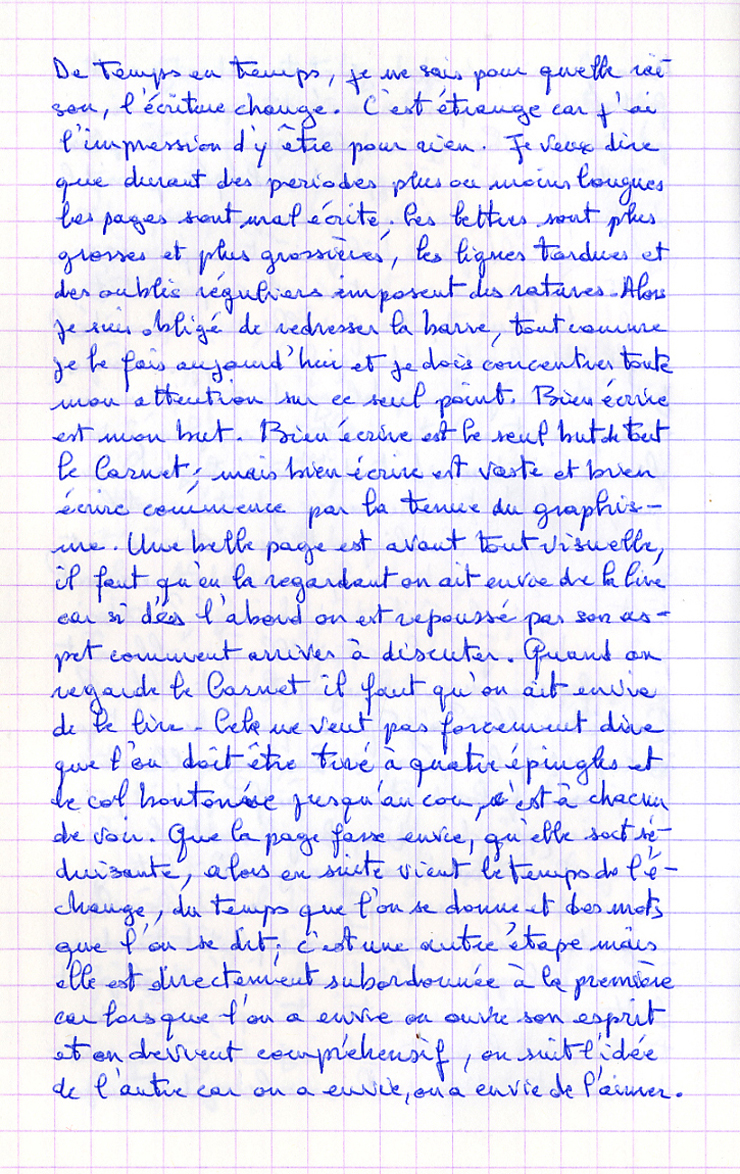 De temps en temps, je ne sais pour quelle rai
son, l'écriture change. C'est étrange car j'ai
l'impression d'y être pour rien. Je veux dire
que durant des periodes plus ou moins longues
les pages sont mal écrite. Les lettres sont plus
grosses et plus grossières, les lignes tordues et
des oublis réguliers imposent des ratures. Alors
je suis obligé de redresser la barre, tout comme
je le fais aujourd'hui et je dois concentrer toute
mon attention sur ce seul point. Bien écrire
est mon but. Bien écrire est le seul but de tout
le Carnet; mais bien écrire est vaste et bien
écrire commence par la tenue du graphis-
me. Une belle page est avant tout visuelle,
il faut qu'en la regardant on ait envie de la lire
car si dès l'abord on est repoussé par son as-
pet comment arriver à discuter. Quand on
regarde le Carnet il faut qu'on ait envie
de le lire. Cela ne veut pas forcement dire
que l'on doit être tiré à quatre épingles et
le col boutonée jusqu'au cou, c'est à chacun
de voir. Que la page fasse envie, qu'elle soit sé-
duisante, alors en suite vient le temps de l'é-
change, du temps que l'on se donne et des mots
que l'on se dit; c'est une autre étape mais
elle est directement subordonnée à la première
car lorsque l'on a envie on ouvre son esprit
et on devient compréhensif, on suit l'idée
de l'autre car on a envie, on a envie de l'aimer.